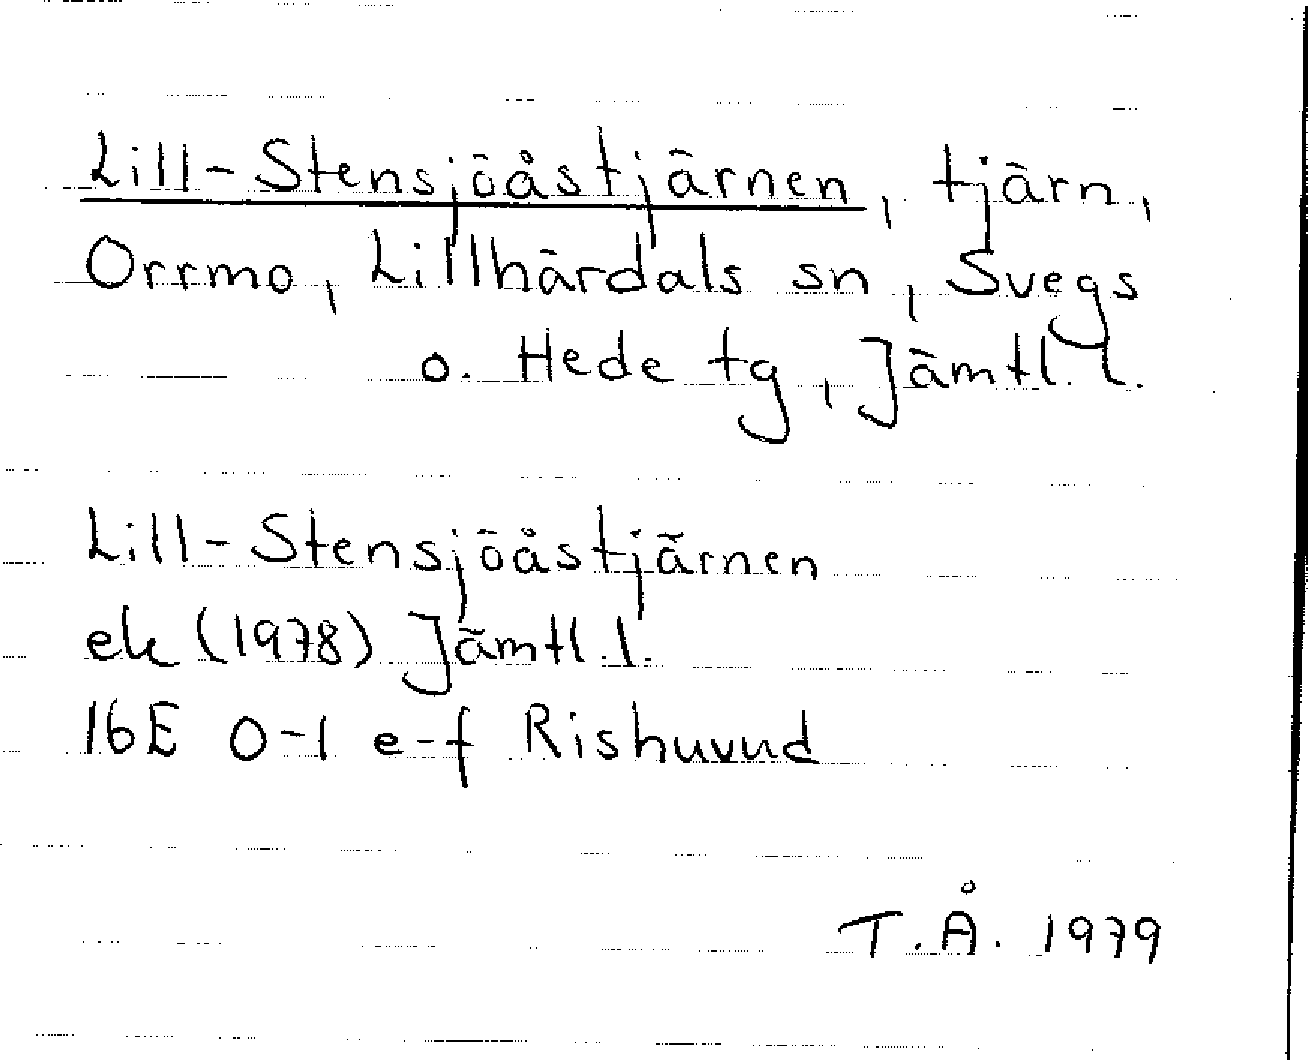 Lill-Stensjöåstjärnen, tjärn,
Orrmo, Lillhärdals sn, Svegs
o. Hede tg, Jämtl. l.
Lill-Stensjöåstjärnen
ek (1978) Jämtl. l.
16E 0-1 e-f Rishuvud
T.Å. 1979